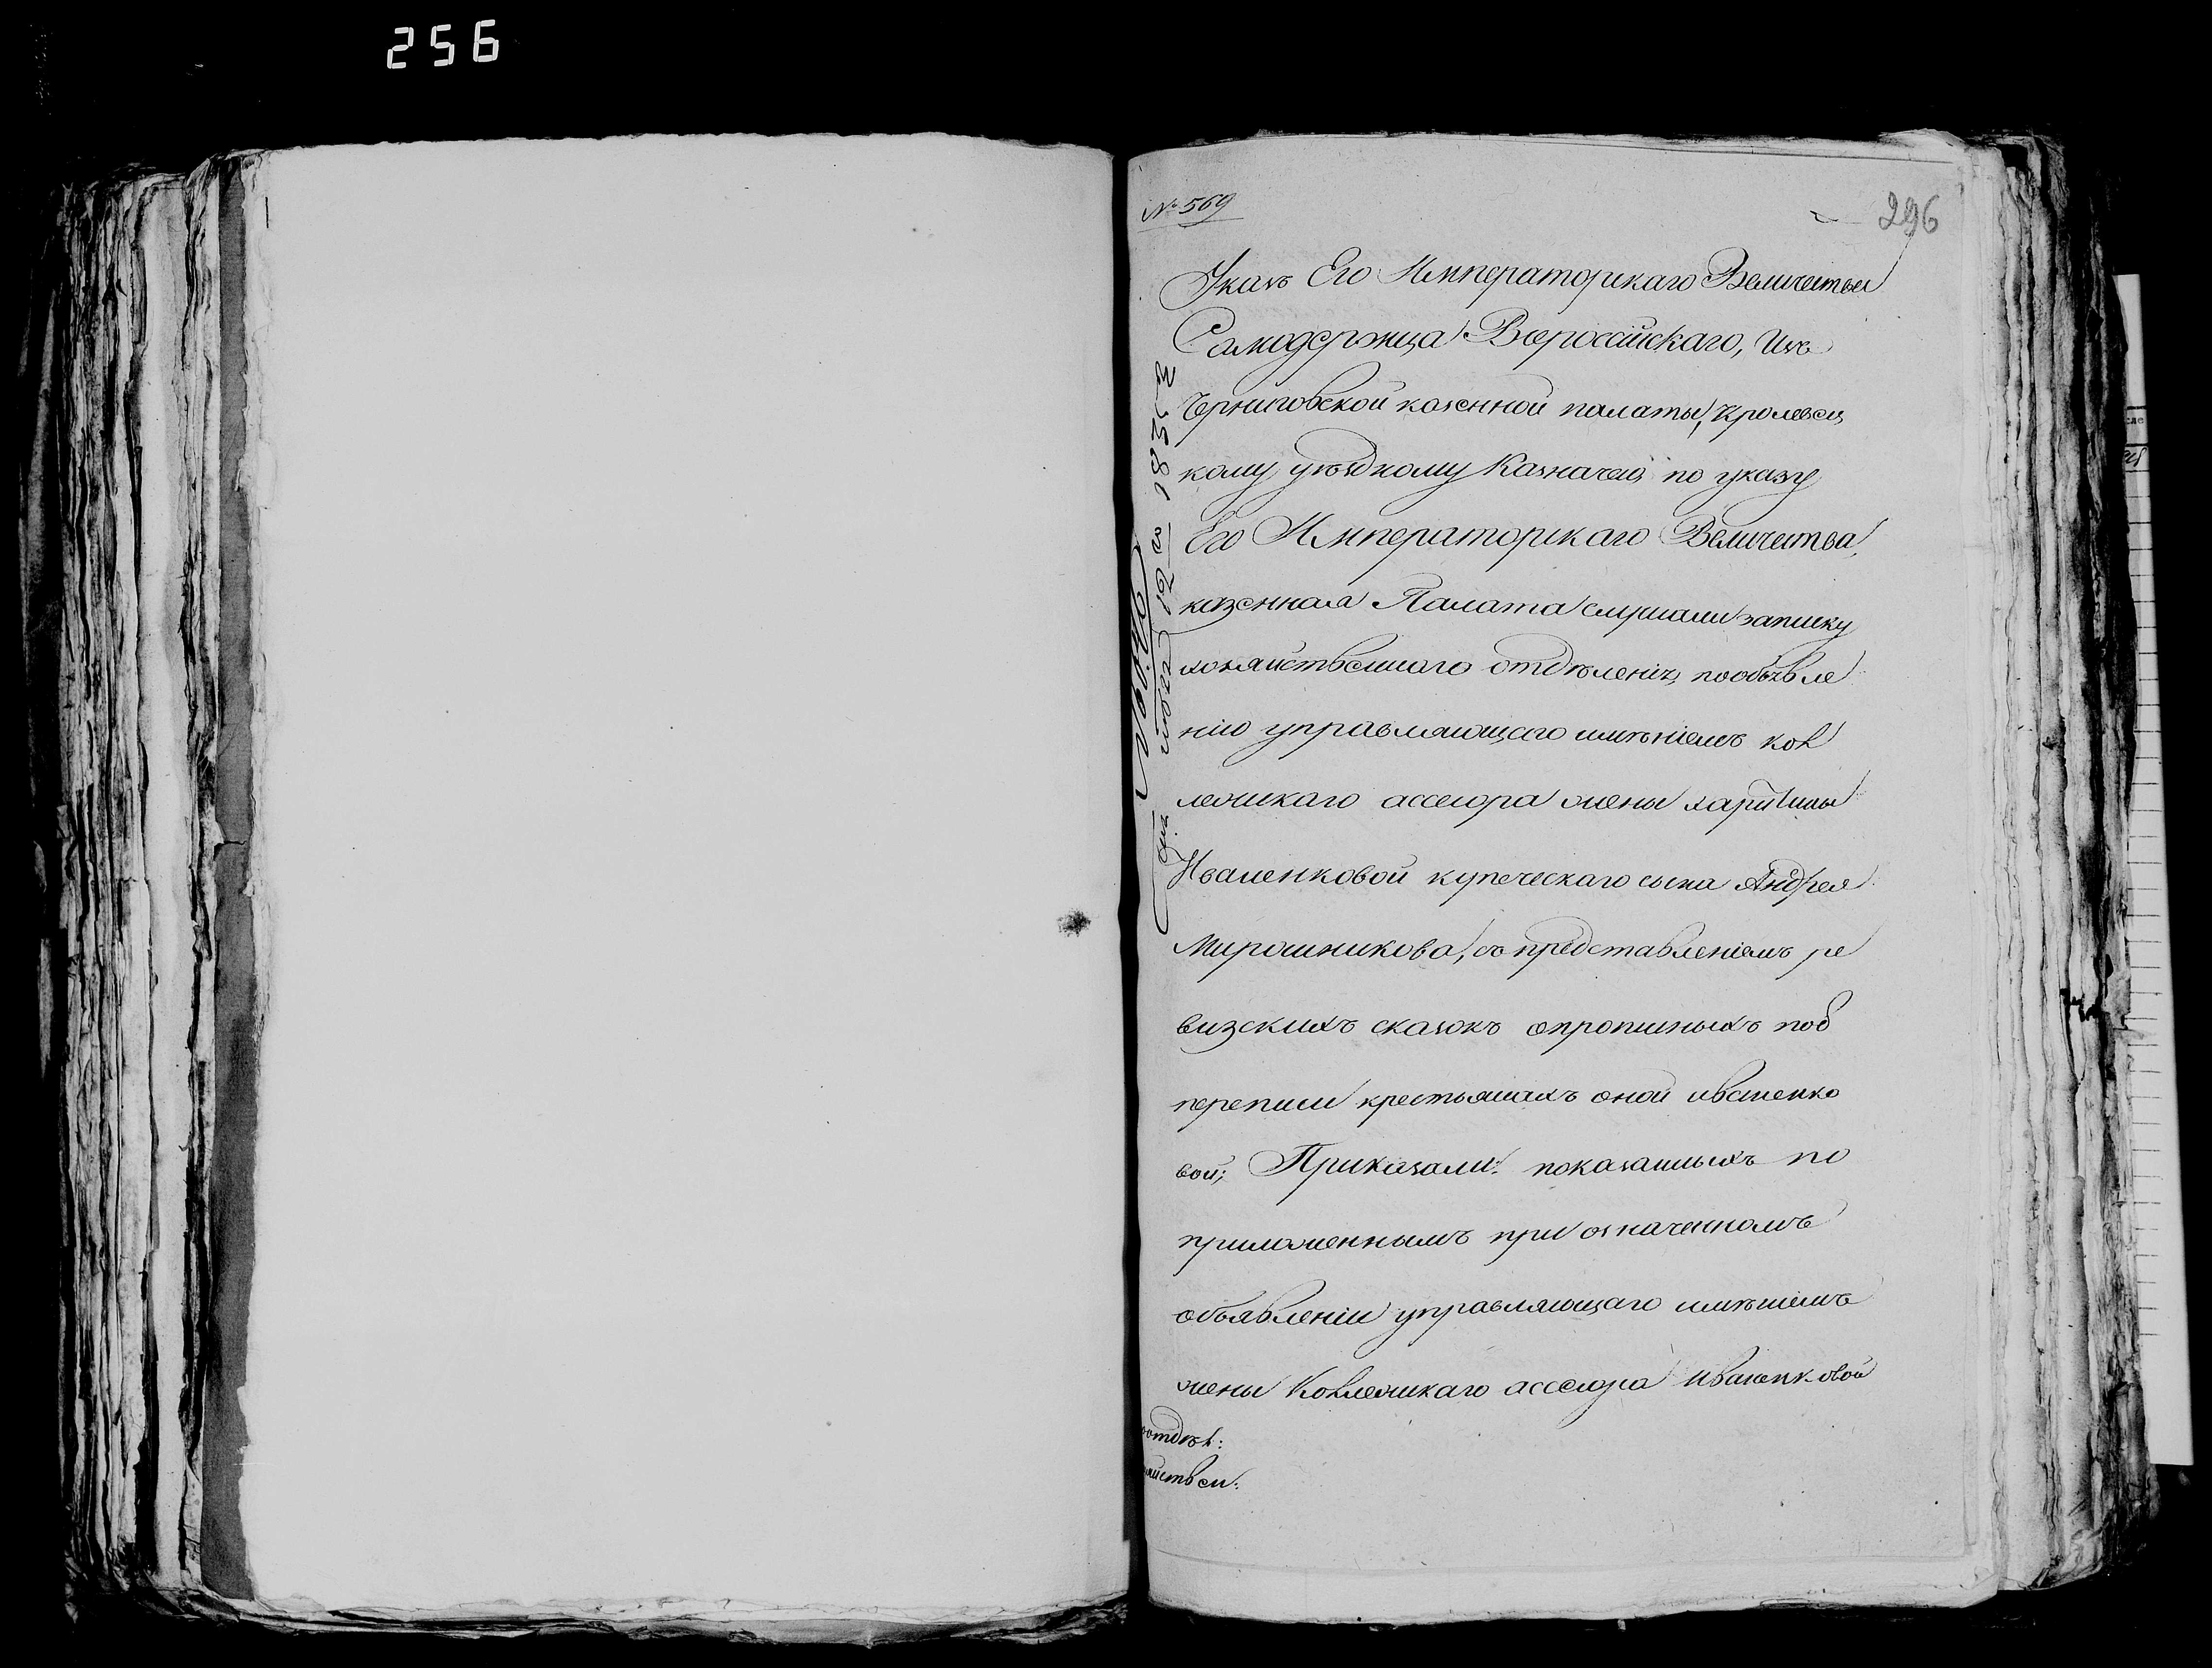 256
№ 569
296
Указъ Его Императорскаго Величества
Самодержца Всероссійскаго, изъ
Черниговской казенной палаты, Кролевец
кому уѣздному Казначею по указу
Его Императорскаго Величества,
казенная Палата слушали записку
хозяйственнаго отдѣленія, по объявле
нію управляющаго имѣніемъ кол
лежскаго ассесора жены
Иваненковой купеческаго сына Андрея
Мирошникова, съ представленіемъ ре
визскихъ сказокъ о пропиныхъ по 8
переписи крестьянахъ оной иваненко
вой; Приказали: показанныхъ по
приложеннымъ при означенномъ
объявленіи управляющаго имѣніемъ
жены Коллежскаго ассесора Иваненковой
отдѣл:
яйствен:
1835